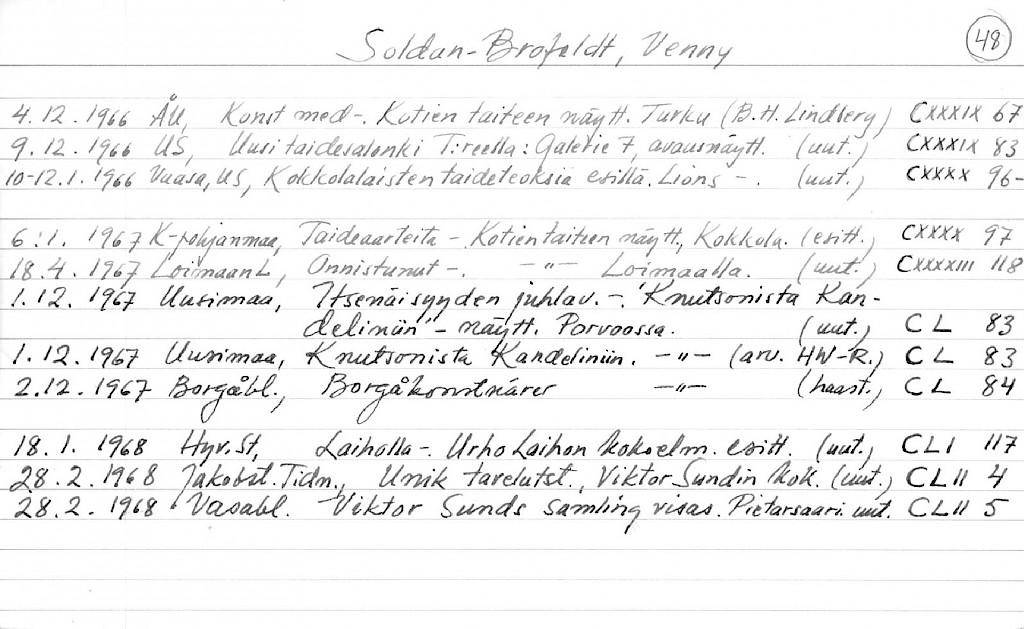 Soldan-Brofeldt, Venny
48
4.12.1966 ÅU, Konst med -. Kotien taiteen näytt. Turku (B.H. Lindberg) CXXXIX 67
9.12.1966 US, Uusi taidesalonki T:reella: Galerie 7, avausnäytt. (uut.) CXXXIX 83
10-12.1.1966 Vaasa, US, Kokkolalaisten taideteoksia esillä. Lions -. (uut.) CXXXX 96-
6.1.1967 K-pohjanmaa, Taideaarteita - Kotien taiteen näytt., Kokkola. (esitt.) CXXXX 97
18.4.1967 Loimaan L, Onnistunut -. -"- Loimaalla. (uut.) CXXXXIII 118
1.12.1967 Uusimaa, Itsenäisyyden juhlav. -. 'Knutsonista Kan-
deliniin' - näytt. Porvoossa. (uut.) CL 83
1.12.1967 Uusimaa, Knutsonista Kandeliniin. -"- (arv. HW-R.) CL 83
2.12.1967 Borgåbl., Borgåkonstnärer -"- (haast.) CL 84
18.1.1968 Hyv.St, Laiholla - Urho Laihon kokoelm. esitt. (uut.) CLI 117
28.2.1968 Jakobst. Tidn., Unik tavelutst., Viktor Sundin kok. (uut.) CLII 4
28.2.1968 Vasabl. Viktor Sunds samling visas. Pietarsaari. uut. CLII 5